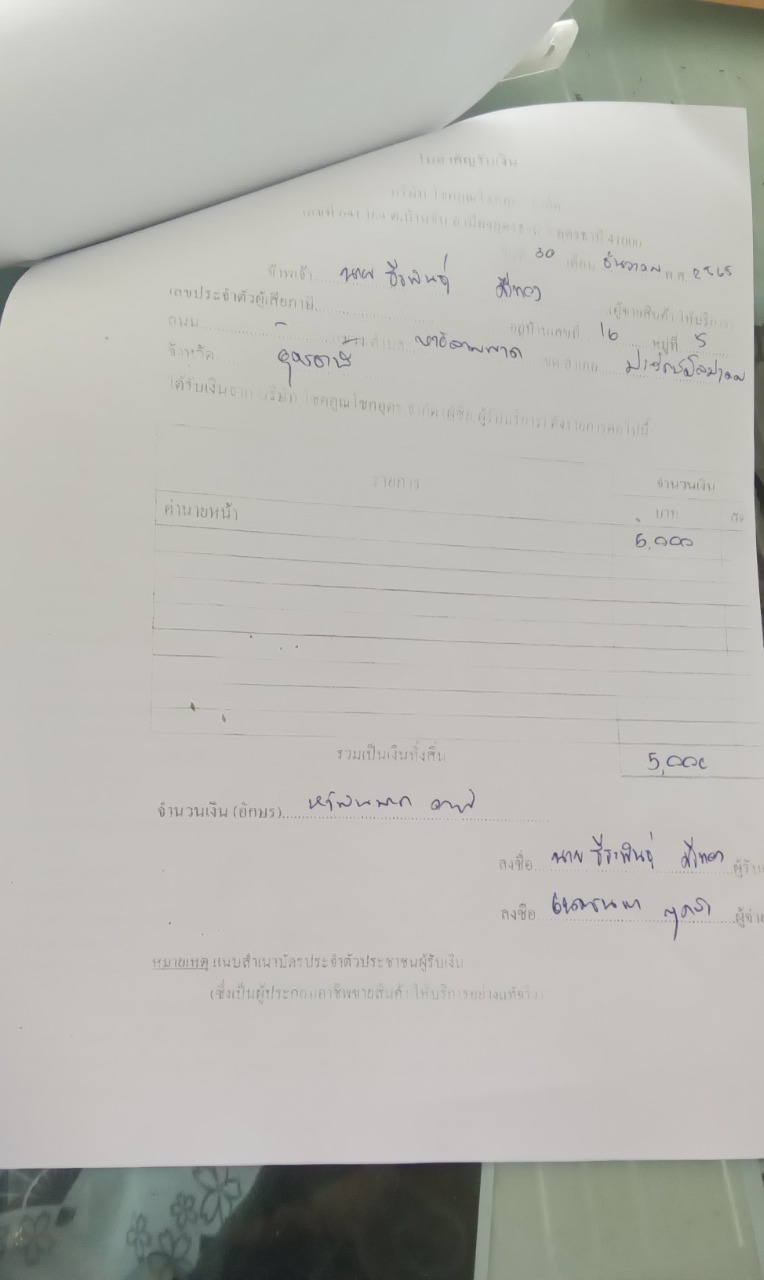 ใบสำคัญรับเงิน
บริษัท โชคคูณโชคอุดร จำกัด
เลขที่ ต.บ้านจั่น อ.เมืองอุดรธานี จ.อุดรธานี 41000
วันที่ 30 เดือน ธันวาคม พ.ศ. 2565
ข้าพเจ้า นาย ธีรพันธุ์ (ผู้ขายสินค้า/ให้บริการ)
เลขประจำตัวผู้เสียภาษี อยู่บ้านเลขที่ 16 หมู่ที่ 5
ถนน - ตำบล เขต/อำเภอ
จังหวัด อุดรธานี
ได้รับเงินจาก บริษัท โชคคูณโชคอุดร จำกัด (ผู้ซื้อ/ผู้รับบริการ) ดังรายการต่อไปนี้
รายการ จำนวนเงิน
บาท
ค่านายหน้า 5,000
รวมเป็นเงินทั้งสิ้น 5,000
จำนวนเงิน (อักษร) ห้าพันบาท
ลงชื่อ นาย ธีรพันธุ์ ผู้รับ
ลงชื่อ ผู้จ่าย
หมายเหตุ แนบสำเนาบัตรประจำตัวประชาชนผู้รับเงิน
(ซึ่งเป็นผู้ประกอบอาชีพขายสินค้า/ให้บริการอย่างแท้จริง)